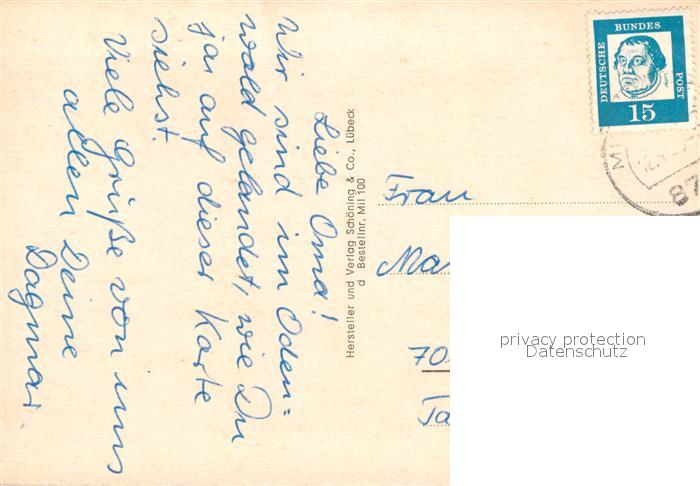 Liebe Oma!
Wir sind im Oden=
wald gelandet, wie Du
ja auf dieser Karte
siehst.
Viele Grüße von uns
allen Deine
Dagmar
Hersteller und Verlag Schöning & Co., Lübeck
d Bestellnr. Mil 100
DEUTSCHE BUNDES POST
15
Frau
70
privacy protection
Datenschutz